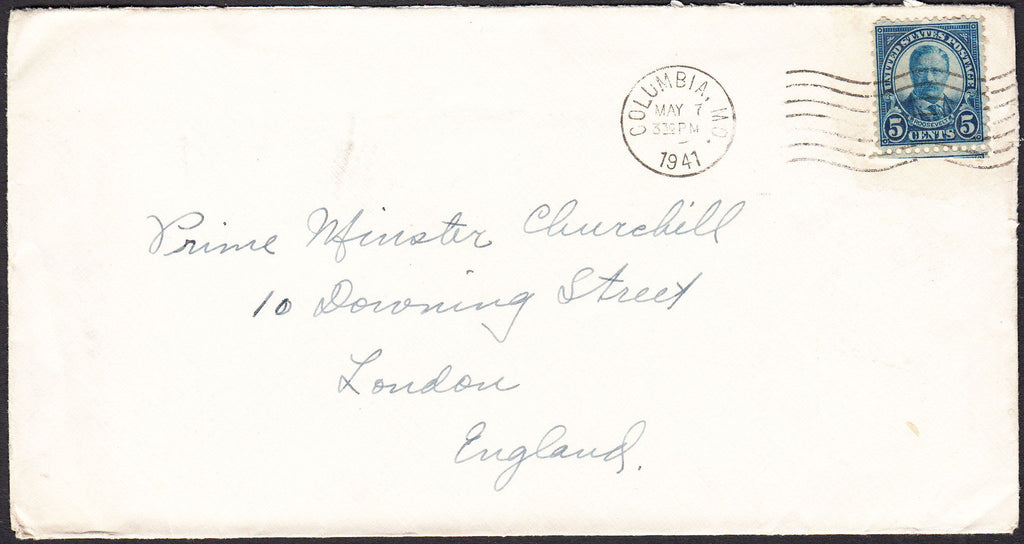 UNITED STATES POSTAGE
ROOSEVELT
5 CENTS 5
COLUMBIA, MO.
MAY 7
3 30 PM
1941
Prime Minster Churchill
10 Downing Street
London
England.